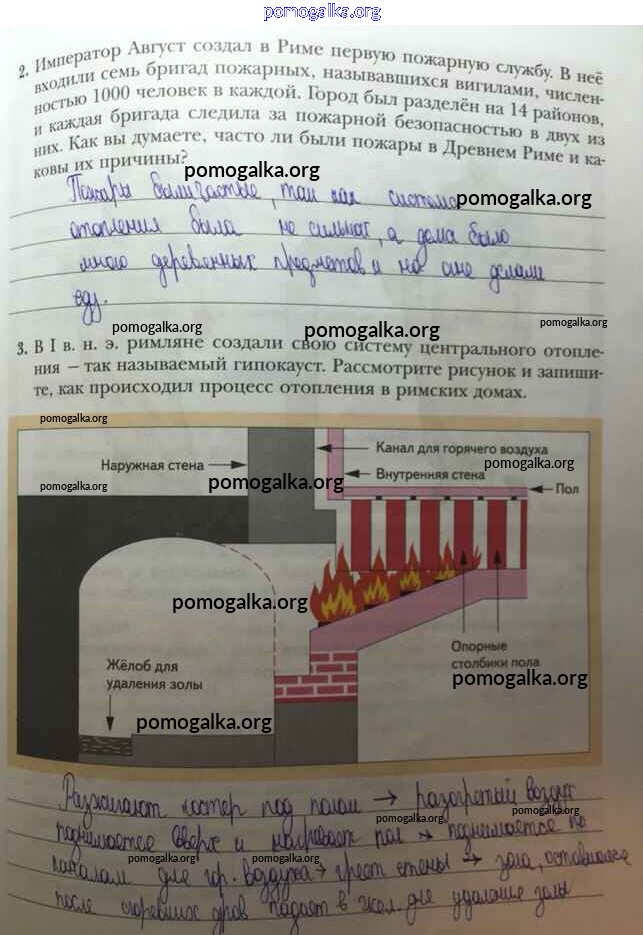 pomogalka.org
2. Император Август создал в Риме первую пожарную службу. В неё
входили семь бригад пожарных, называвшихся вигилами, числен-
ностью 1000 человек в каждой. Город был разделён на 14 районов,
и каждая бригада следила за пожарной безопасностью в двух из
них. Как вы думаете, часто ли были пожары в Древнем Риме и ка-
ковы их причины?
pomogalka.org
Пожары были частые, так как система
pomogalka.org
отопления была не сильная, а дома было
много деревенных предметов и на огне делали
еду.
pomogalka.org
pomogalka.org
pomogalka.org
3. В I в. н. э. римляне создали свою систему центрального отопле-
ния – так называемый гипокауст. Рассмотрите рисунок и запиши-
те, как происходил процесс отопления в римских домах.
pomogalka.org
Канал для горячего воздуха
Наружная стена
pomogalka.org
Внутренняя стена
pomogalka.org
pomogalka.org
Пол
pomogalka.org
Опорные
столбики пола
Жёлоб для
удаления золы
pomogalka.org
pomogalka.org
Разжигают костер под полом → разогретый воздух
pomogalka.org
pomogalka.org
поднимается вверх и нагревает пол → поднимается по
каналам для гор. воздуха → греет стены → зола, оставшаяся
pomogalka.org
pomogalka.org
после сгоревших дров падает в жел. для удаления золы